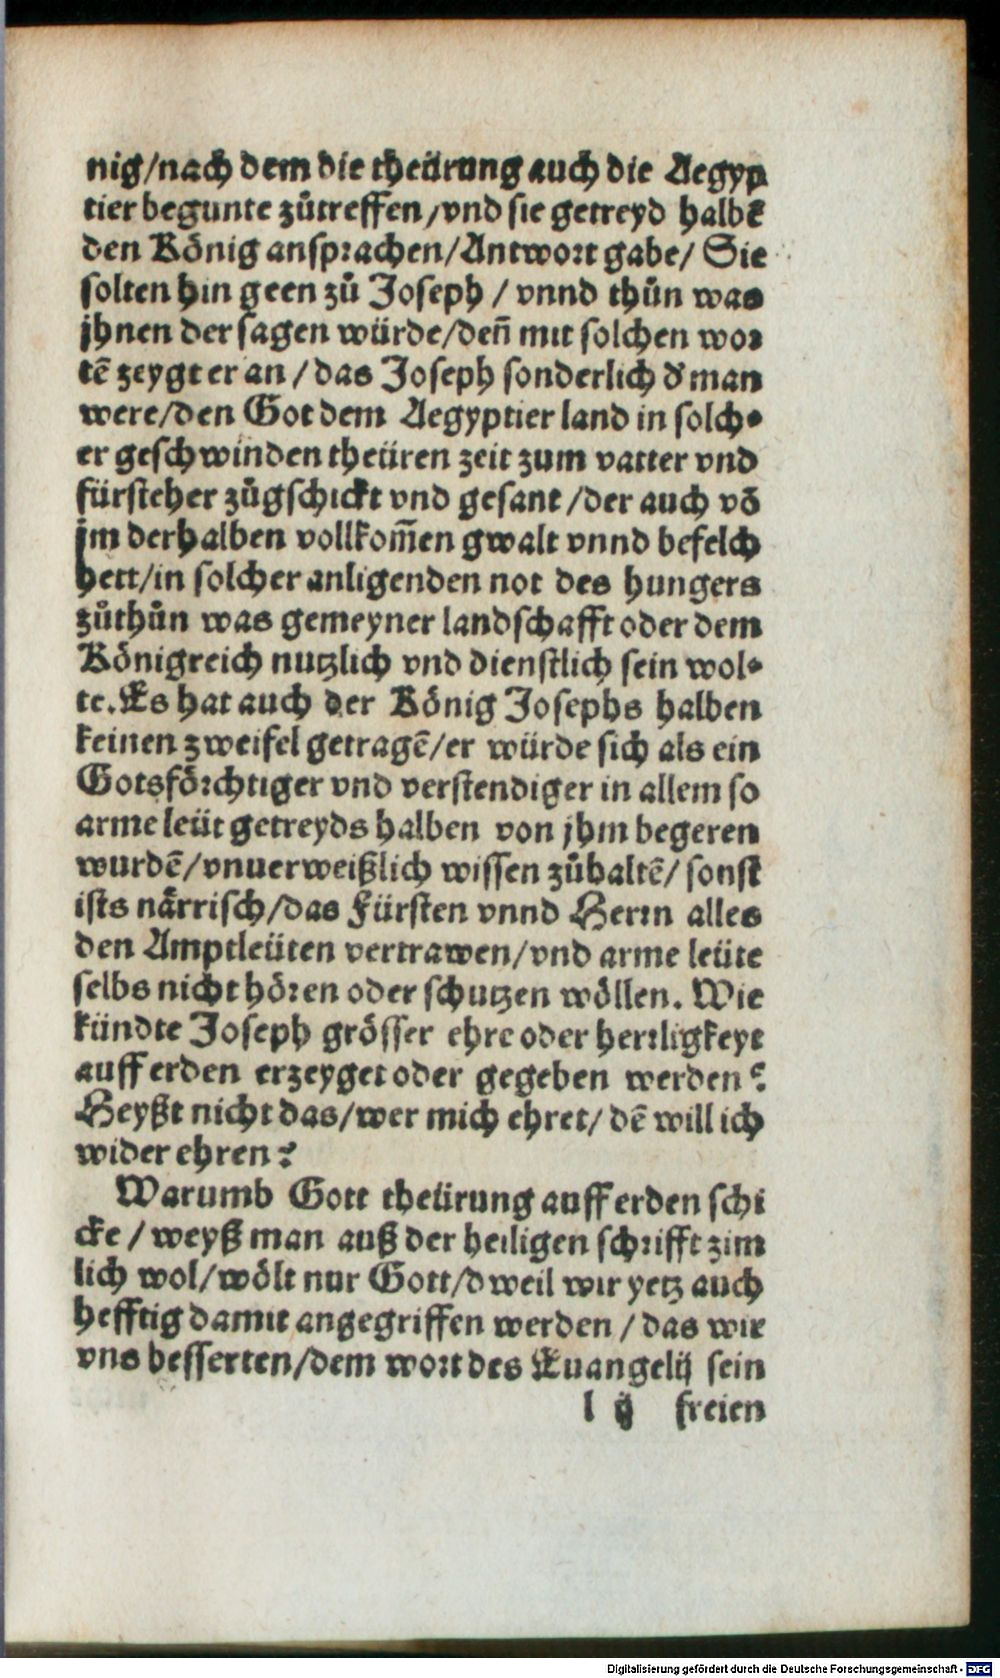 nig/nach dem die theürung auch die Aegyp
tier begunte zůtreffen/vnd sie getreyd halbē
den König ansprachen/Antwort gabe/ Sie
solten hin geen zů Joseph / vnnd thůn was
jhnen der sagen würde/deñ mit solchen wor
tē zeygt er an / das Joseph sonderlich d' man
were/den Got dem Aegyptier land in solch-
er geschwinden theüren zeit zum vatter vnd
fürsteher zůgschickt vnd gesant /der auch vō
jm derhalben vollkom̄en gwalt vnnd befelch
hett/in solcher anligenden not des hungers
zůthůn was gemeyner landschafft oder dem
Königreich nutzlich vnd dienstlich sein wol-
te. Es hat auch der König Josephs halben
keinen zweifel getragē/er würde sich als ein
Gotsförchtiger vnd verstendiger in allem so
arme leüt getreyds halben von jhm begeren
wurdē/vnuerweißlich wissen zůhaltē/ sonst
ists närrisch/das Fürsten vnnd Herrn alles
den Amptleüten vertrawen/vnd arme leüte
selbs nicht hören oder schutzen wöllen. Wie
kündte Joseph grösser ehre oder herrligkeyt
auff erden erzeyget oder gegeben werden?
Heyßt nicht das/wer mich ehret/ dē will ich
wider ehren?
Warumb Gott theürung auff erden schi
cke / weyß man auß der heiligen schrifft zim
lich wol/wölt nur Gott/dweil wir yetz auch
hefftig damit angegriffen werden / das wir
vns besserten/dem wort des Euangelij sein
l ij freien
Digitalisierung gefördert durch die Deutsche Forschungsgemeinschaft - DFG